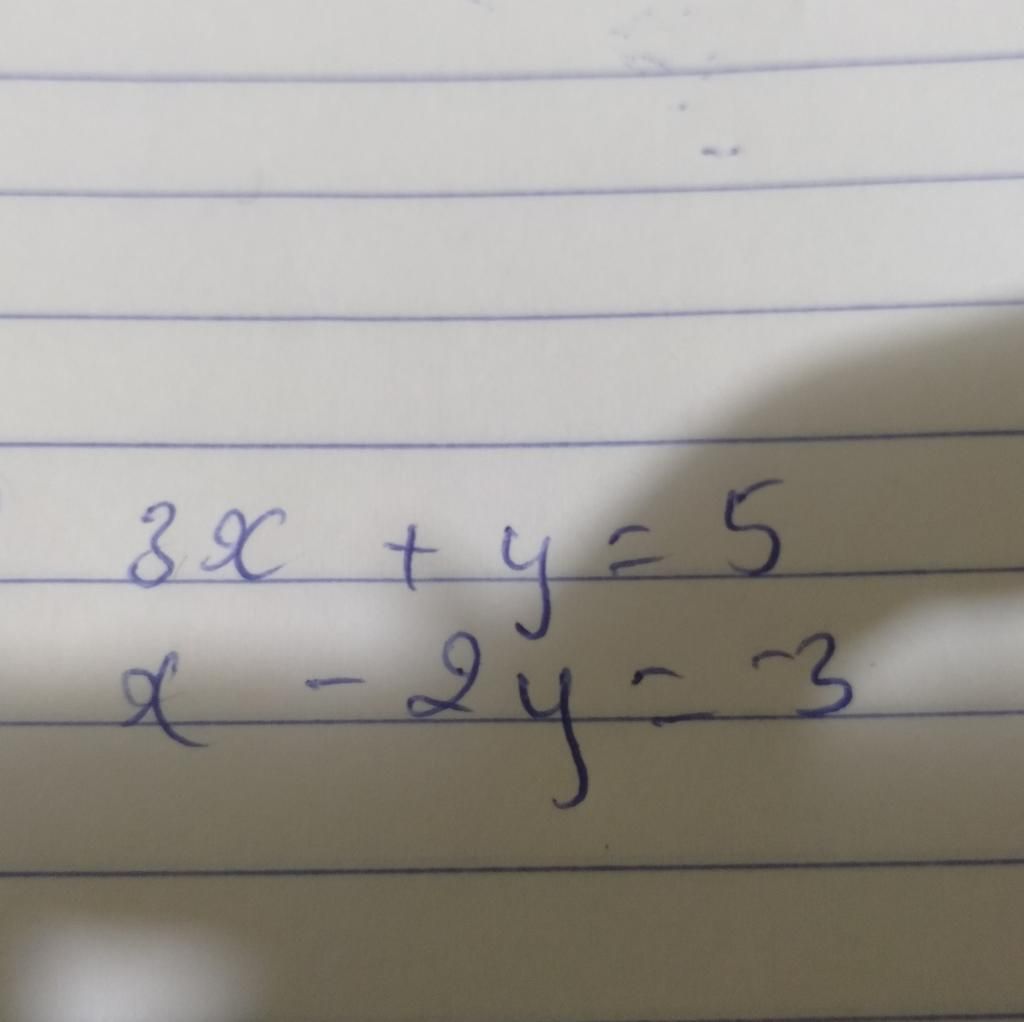 3x + y = 5
x - 2y = -3